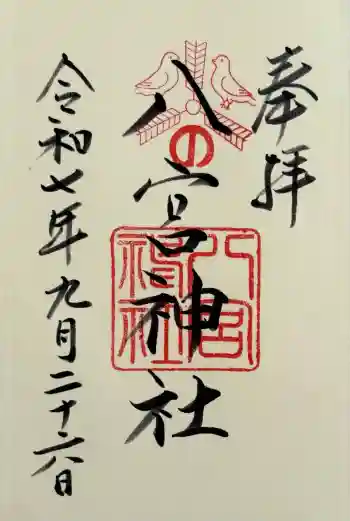 奉拝
八の宮神社
八宮神社
令和七年九月二十六日